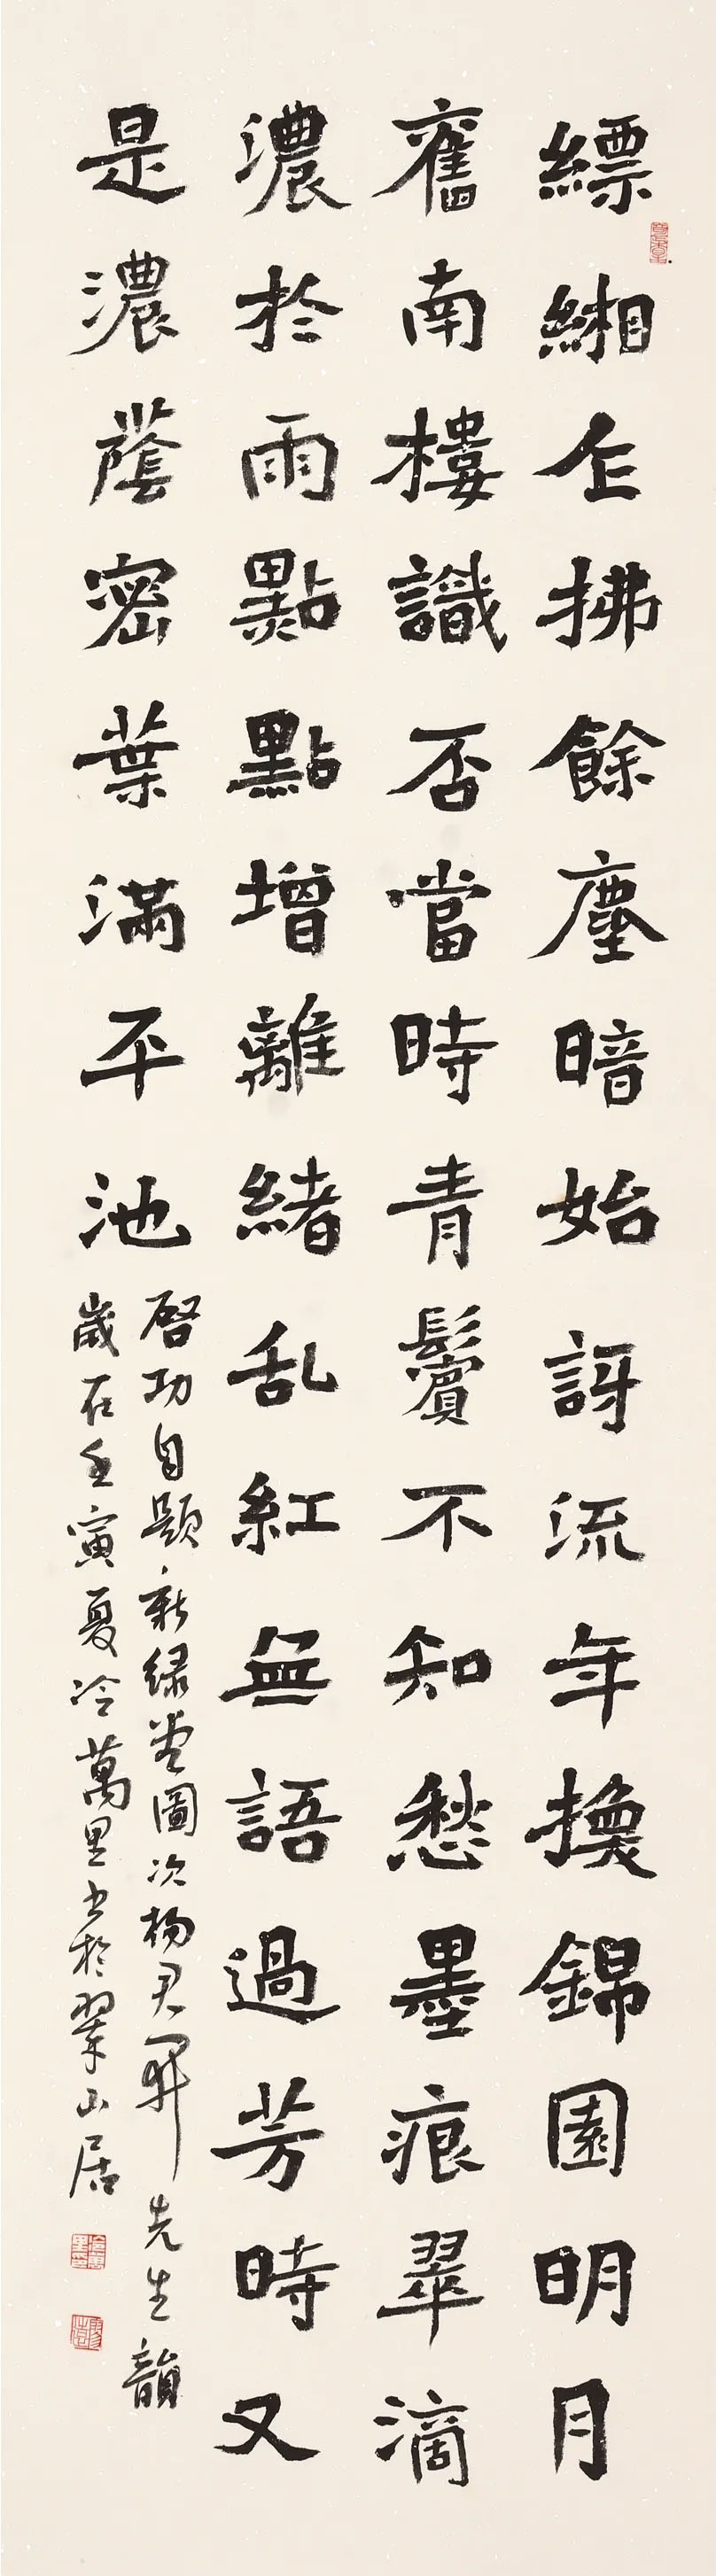 縹緗乍拂餘塵暗始訝流年換錦園明月
舊南樓識否當時青鬢不知愁墨痕翠滴
濃於雨點點增離緒乱紅無語過芳時又
是濃蔭密葉滿平池
啓功自題新绿堂圖次楊君武先生韻
歲在壬寅夏冷萬里书於翠山居